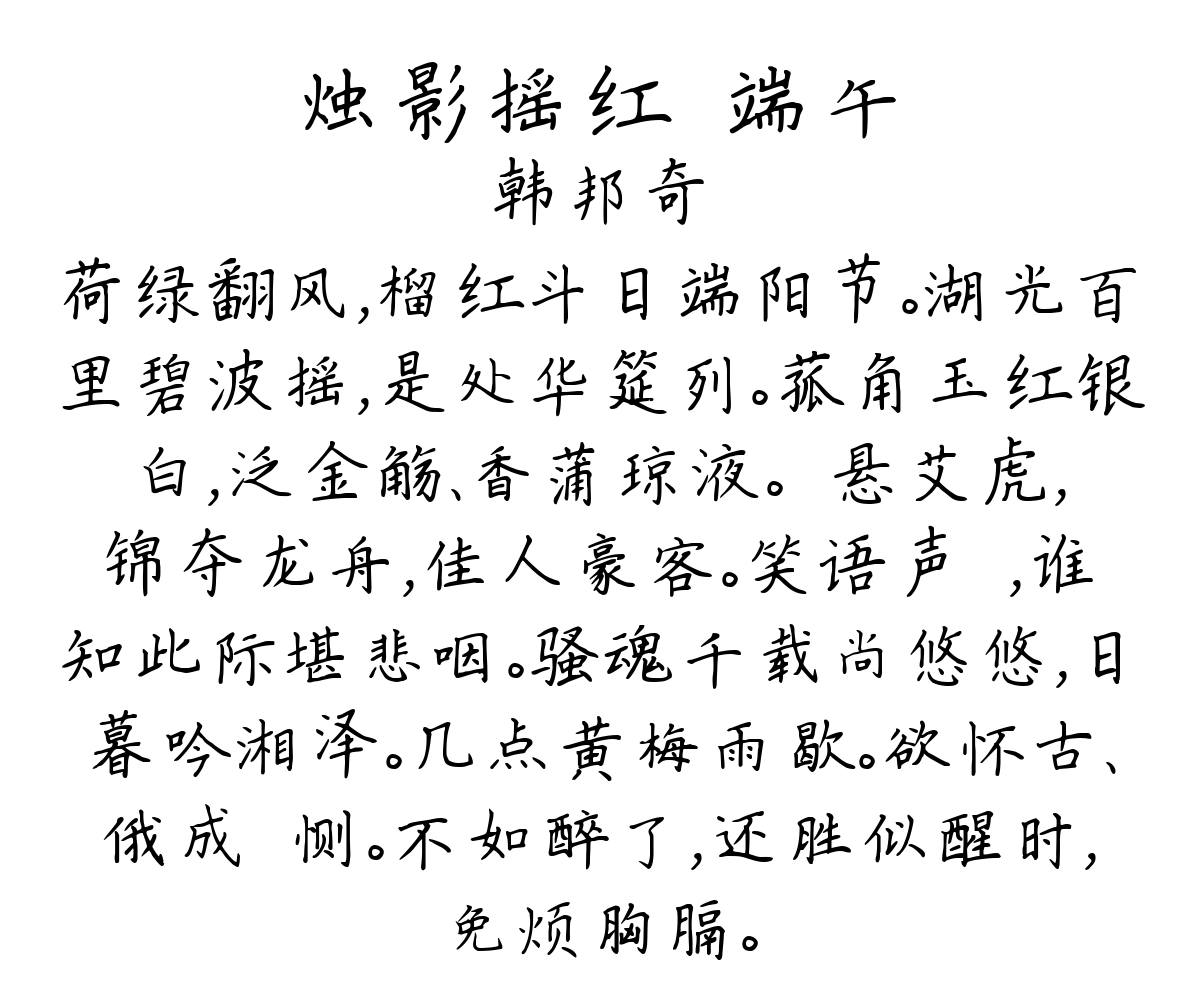 烛影摇红 端午
韩邦奇
荷绿翻风,榴红斗日端阳节。湖光百
里碧波摇,是处华筵列。菰角玉红银
白,泛金觞、香蒲琼液。 悬艾虎,
锦夺龙舟,佳人豪客。笑语声 ,谁
知此际堪悲咽。骚魂千载尚悠悠,日
暮吟湘泽。几点黄梅雨歇。欲怀古、
俄成 恻。不如醉了,还胜似醒时,
免烦胸膈。